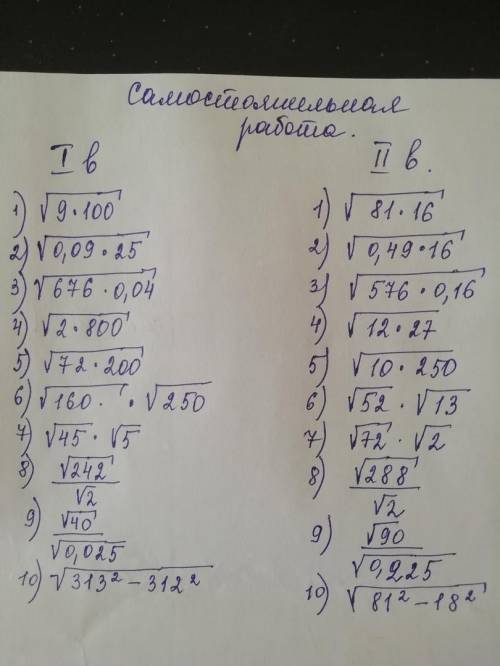 Самостоятельная
работа.
I в
1) √9·100
2) √0,09·25
3) √676·0,04
4) √2·800
5) √72·200
6) √160· · √250
7) √45 · √5
8) √242/√2
9) √40/√0,025
10) √313² − 312²
II в.
1) √81·16
2) √0,49·16
3) √576·0,16
4) √12·27
5) √10·250
6) √52 · √13
7) √72 · √2
8) √288/√2
9) √90/√0,225
10) √81² − 18²